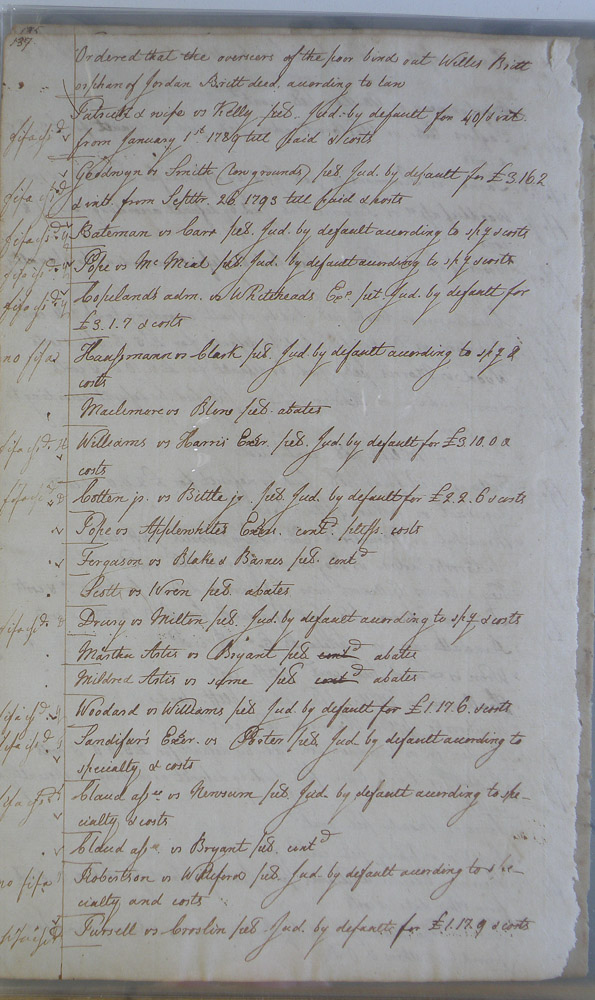 137
Ordered that the overseers of the poor bind out Willis Britt
orphan of Jordan Britt decd, acording to law
Patrick & wife vs Kelly pet. Jud. by default for 40/ & int
fifa isd. from January 1st 1789 till paid & costs
Goodwyn vs Smith (low grounds) pet. Jud. by default for £3.16.2
fifa isd. & intt. from Septtr. 26 1793 till paid & costs
fifa isd. Bateman vs Carr pet. Jud. by default according to spy & costs
fifa isd. Pope vs Mc Mial pet. Jud. by default according to spy & costs
fifa isd. Copelands adm. vs Whiteheads Exr. pet. Jud. by default for
£3.1.7 & costs
no fifas Haussmann vs Clark pet. Jud by default according to spy &
costs
Maclemore vs Blow pet. abates
fifa isd. Williams vs Harris Exor. pet. Jud. by default for £3.10.0 &
costs
fifa isd. Cotten jr. vs Bittle jr. pet. Jud. by default for £2.2.6 & costs
Pope vs Applewhites Exors. contd. pltffs. costs
Ferguson vs Blake & Barnes pet. contd
Scott vs Wren pet. abates
fifa isd. Drury vs Milton pet. Jud. by default according to spy & costs
Martha Artes vs Bryant pet contd abates
Mildred Artes vs same pet contd abates
fifa isd. Woodard vs Williams pet. Jud by default for £1.17.6. & costs
fifa isd. Sandifur's Exor. vs Porter pet. Jud by default according to
specialty, & costs
fifa isd. Claud assee vs Newsum pet. Jud. by default according to spe-
cialty & costs
Claud assee vs Bryant pet. contd
no fifa Robertson vs Williford pet. Jud by default according to spe-
cialty and costs
fifa isd. Pursell vs Croslin pet. Jud. by default for £1.17.9 & costs